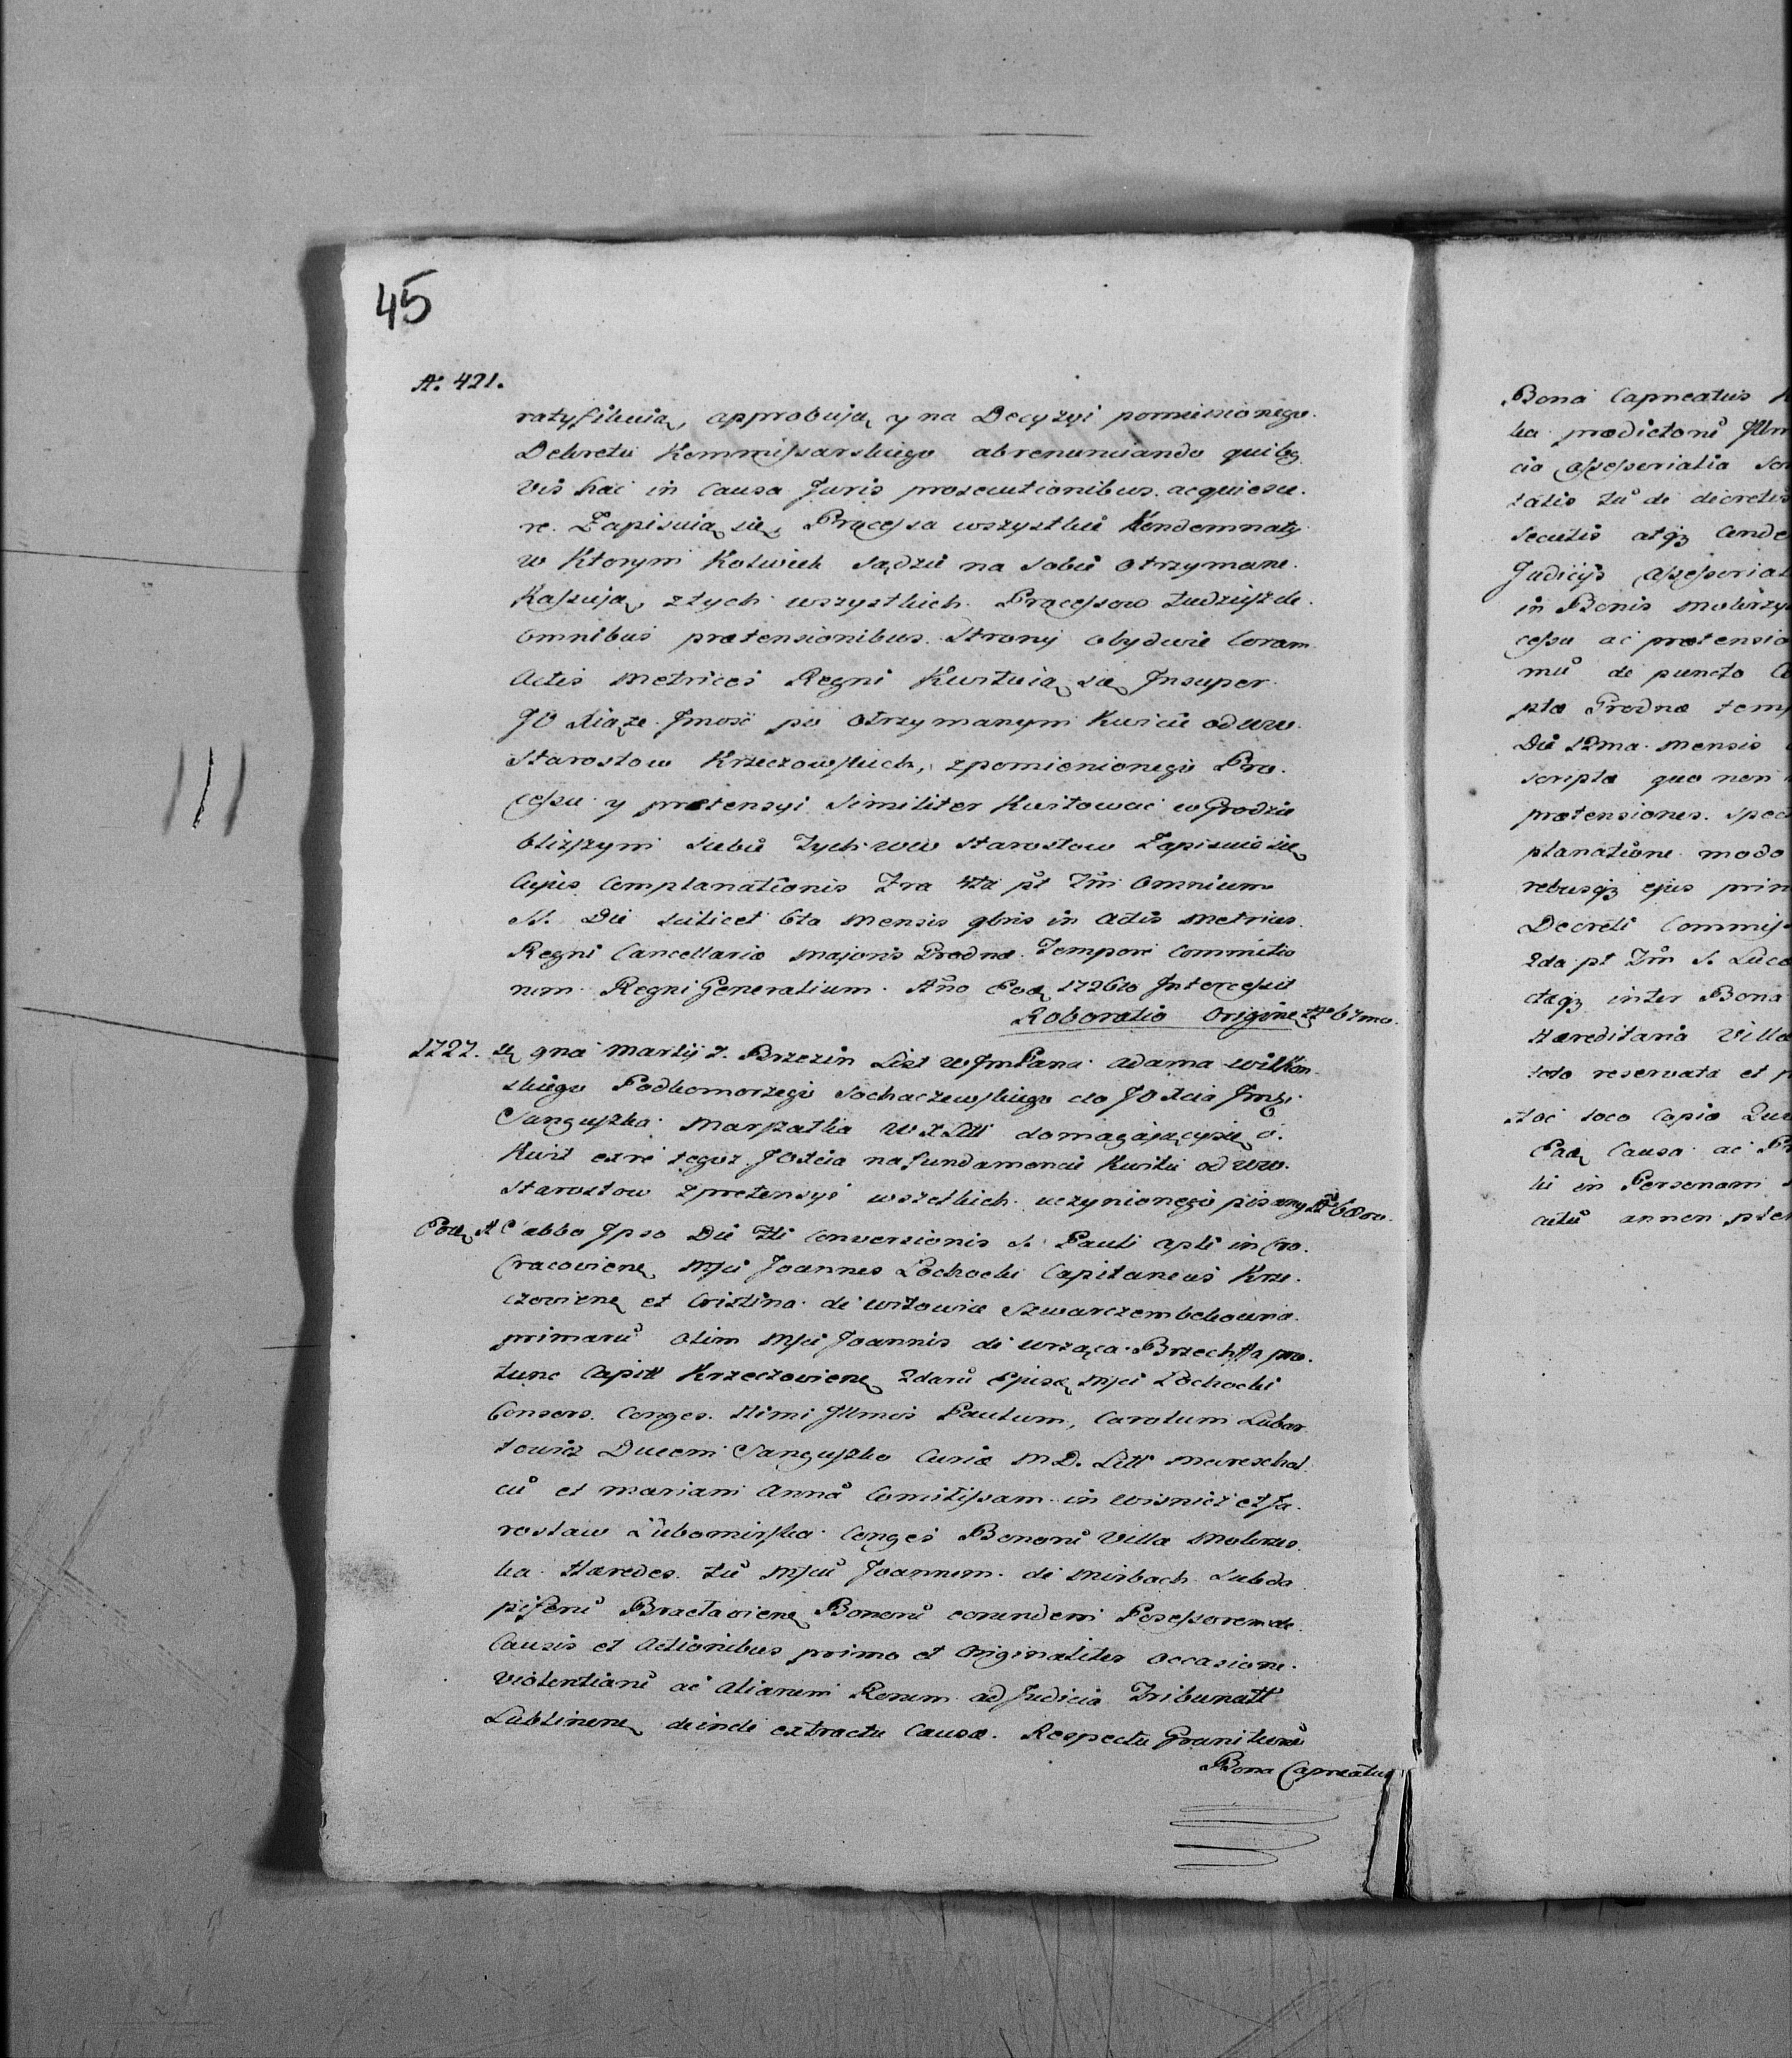 45
A: 421.
ratyfikuią, approbują y na Decyzyi pomienionego
Dekretu Kommissarskiego abrenunciando quibg
vis hac in Causa Juris prosecutionibus acquiesce
re Zapisuią się, Processa wszystkie Kondemnaty
w Ktorym Kolwiek Sądzie na sobie otrzymane
Kassują, z tych wszystkich Processow tudziesz de
omnibus prætensionibus Strony obydwie Coram
Actis Metrices Regni Kwituią się Insuper
JO Xiąże Jmość po otrzymanym Kwicie od ww
Starostow Krzeczowskich, z pomienionego Pro
cessu y prætensyi Similiter Kwitować w Grodzie
bliższym siebie Tych ww Starostow Zapisuie się
Cujus Complanationis Fra 4ta pt Fm Omnium
S. Die scilicet 6ta Mensis 9bris in Actis Metrices
Regni Cancellariæ Majoris Grodnæ Tempore Commitio
rum Regni Generalium Ano Eod 1726to Intercessit
Roboratio Origine No 67mo.
1727. 9na Martij z Brzezin List W JmPana Adama Wilkon
skiego Podkomorzego Sochaczewskiego do JO Xcia Jmsi
Sanguszka Marszałka W X Litt domagającysię o
Kwit ex re tegoż JO Xcia na fundamencie Kwitu od ww
Starostow z prætensyi wszelkich uczynionego pisany No 68vo.
Eod A C abbo Ipso Die Fti Conversionis S. Pauli Apli in Cro
Cracoviene Mfci Joannes Łochocki Capitaneus Krze
czoviene et Cristina de Witowic Szwarczembekowna
primaru olim Mfci Joannis de Wrząca Brzechffa pro
tunc Capitt Krzeczoviene 2daru Ejusd Mfci Łochocki
Consors Conges Illmi Illmos Paulum, Carolum Lubar
towicz Ducem Sanguszko Curiæ M D. Litt Mareschal
cu et Mariam Anna Comitissam in Wisnicz et Ja
rosław Lubomirska Conges Bonoru Villæ Mokrzys
ka Hæredes tu Mfcu Joannem de Mirbach Subda
piferu Bractaviene Bonoru eorundem Possessorem de
Causis et Actionibus primo et Originaliter occasione
Violentiaru ac Aliarum Rerum ad Judicia Tribunatt
Lublinene deinde extractu Causæ Respectu Granitieru
Bona Capneatus
Bona Capneatus
ka prædictoru
cio Assessorialia
tatis tu de decretis
secutis atqz Conde
Judicijs Assessorial
in Bonis Mokrzy
cessu ac prætensio
mu de puncto
ptæ Grodnæ temp
Die 12ma Mensis
scripta quo non
prætensiones Spec
planatione modo
rebusqz ejus prin
Decreti Commis
2da pt Fm S. Luca
ctaqz inter Bona
Hæreditaria Villæ
toto reservata et p
Hoc loco Copia
Eod Causa ac
ki in Personam
citu annen pten